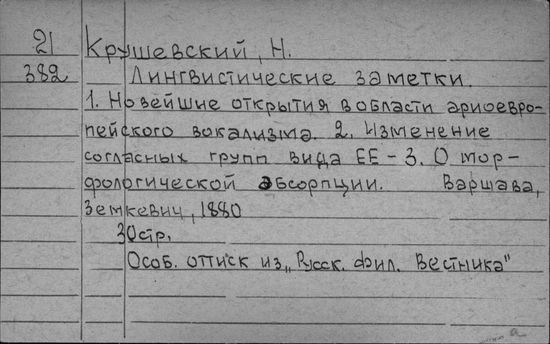 21 Крушевский, Н.
382 Лингвистические заметки.
1. Новейшие открытия в области ариоевро-
пейского вокализма. 2. Изменение
согласных групп вида ЕЕ - 3. О мор-
фологической абсорпции. Варшава,
Земкевич, 1880
30стр.
Особ. оттиск из „Русск. фил. Вестника"